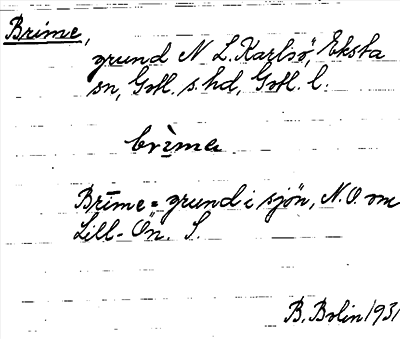 Brime,
grund N L. Karlsö, Eksta
sn, Gotl. s. hd, Gotl. l.
brìma
Brīme = grund i sjön, N.O. om
Lill-Ön. S.
B. Bolin 1931